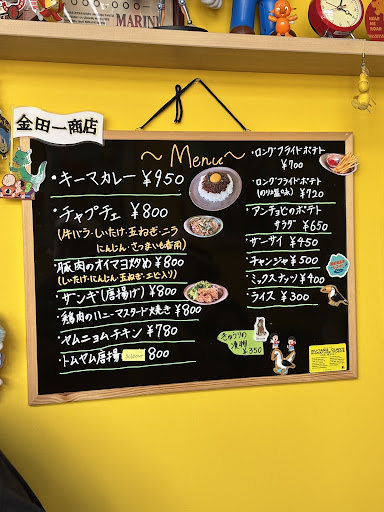 MARINE
金田一商店
～Menu～
・キーマカレー ¥950
・チャプチェ ¥800
(牛バラ・しいたけ・玉ねぎ・ニラ
にんじん・さつまいも春雨)
・豚肉のオイマヨ炒め ¥800
(しいたけ・にんじん・玉ねぎ・エビ入り)
・ザンギ(唐揚げ) ¥800
・鶏肉のハニーマスタード焼き ¥800
・ヤムニョムチキン ¥780
・トムヤム唐揚 800
・ロングフライドポテト
¥700
・ロングフライドポテト
(のり塩味) ¥720
・アンチョビのポテト
サラダ ¥650
・ザーサイ ¥450
・チャンジャ ¥500
・ミックスナッツ ¥400
・ライス ¥300
きゅうりの
漬物
¥350